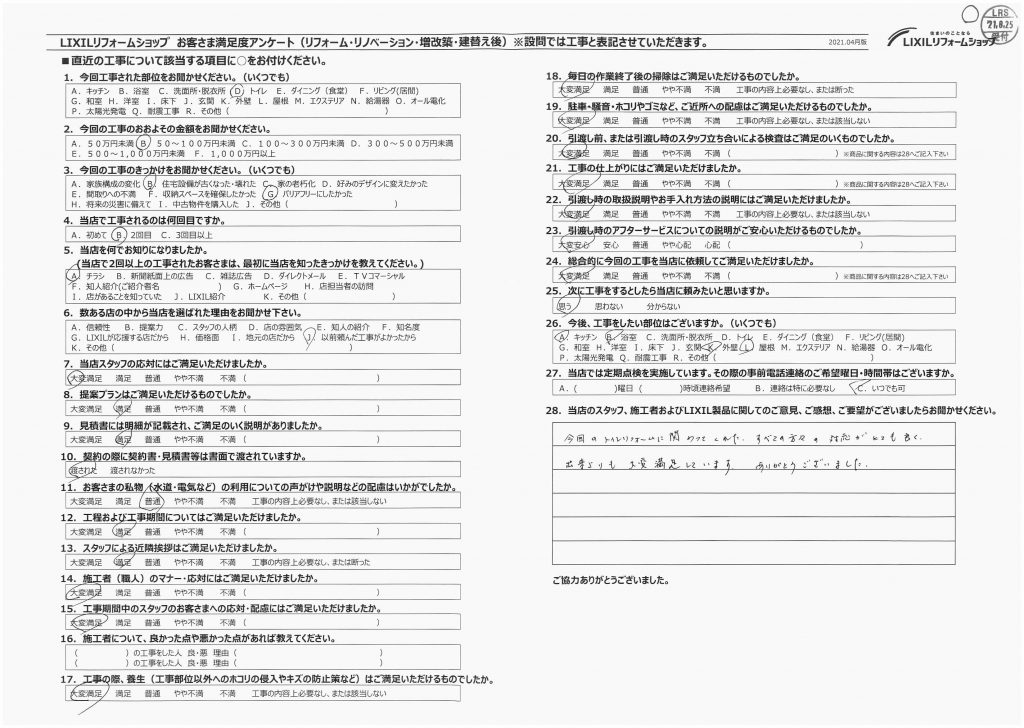 LRS
'21.8.25
受付
LIXILリフォームショップ お客さま満足度アンケート（リフォーム・リノベーション・増改築・建替え後）※設問では工事と表記させていただきます。
2021.04月版
住まいのことなる
LIXILリフォームショップ
■直近の工事について該当する項目に○をお付けください。
1．今回工事された部位をお聞かせください。（いくつでも）
A．キッチン B．浴室 C．洗面所・脱衣所 D．トイレ E．ダイニング（食堂） F．リビング(居間)
G．和室 H．洋室 I．床下 J．玄関 K．外壁 L．屋根 M．エクステリア N．給湯器 O．オール電化
P．太陽光発電 Q．耐震工事 R．その他（ ）
2．今回の工事のおおよその金額をお聞かせください。
A．５０万円未満 B．５０～１００万円未満 C．１００～３００万円未満 D．３００～５００万円未満
E．５００～１,０００万円未満 F．１,０００万円以上
3．今回の工事のきっかけをお聞かせください。（いくつでも）
A．家族構成の変化 B．住宅設備が古くなった・壊れた C．家の老朽化 D．好みのデザインに変えたかった
E．間取りへの不満 F．収納スペースを確保したかった G．バリアフリーにしたかった
H．将来の災害に備えて I．中古物件を購入した J．その他（ ）
4．当店で工事されるのは何回目ですか。
A．初めて B．2回目 C．3回目以上
5．当店を何でお知りになりましたか。
(当店で２回以上の工事されたお客さまは、最初に当店を知ったきっかけを教えてください。)
A．チラシ B．新聞紙面上の広告 C．雑誌広告 D．ダイレクトメール E．ＴＶコマーシャル
F．知人紹介(ご紹介者名 ) G．ホームページ H．店担当者の訪問
I．店があることを知っていた J．LIXIL紹介 K．その他（ ）
6．数ある店の中から当店を選ばれた理由をお聞かせ下さい。
A．信頼性 B．提案力 C．スタッフの人柄 D．店の雰囲気 E．知人の紹介 F．知名度
G．LIXILが応援する店だから H．価格面 I．地元の店だから J．以前頼んだ工事がよかったから
K．その他（ ）
7．当店スタッフの応対にはご満足いただけましたか。
大変満足 満足 普通 やや不満 不満（ ）
8．提案プランはご満足いただけるものでしたか。
大変満足 満足 普通 やや不満 不満（ ）
9．見積書には明細が記載され、ご満足のいく説明がありましたか。
大変満足 満足 普通 やや不満 不満（ ）
10．契約の際に契約書・見積書等は書面で渡されていますか。
渡された 渡されなかった
11．お客さまの私物（水道・電気など）の利用についての声がけや説明などの配慮はいかがでしたか。
大変満足 満足 普通 やや不満 不満 工事の内容上必要なし、または該当しない
12．工程および工事期間についてはご満足いただけましたか。
大変満足 満足 普通 やや不満 不満（ ）
13．スタッフによる近隣挨拶はご満足いただけましたか。
大変満足 満足 普通 やや不満 不満 工事の内容上必要なし、または断った
14．施工者（職人）のマナー・応対にはご満足いただけましたか。
大変満足 満足 普通 やや不満 不満（ ）
15．工事期間中のスタッフのお客さまへの応対・配慮にはご満足いただけましたか。
大変満足 満足 普通 やや不満 不満（ ）
16．施工者について、良かった点や悪かった点があれば教えてください。
（ ）の工事をした人 良・悪 理由（ ）
（ ）の工事をした人 良・悪 理由（ ）
17．工事の際、養生（工事部位以外へのホコリの侵入やキズの防止策など）はご満足いただけるものでしたか。
大変満足 満足 普通 やや不満 不満 工事の内容上必要なし、または該当しない
18．毎日の作業終了後の掃除はご満足いただけるものでしたか。
大変満足 満足 普通 やや不満 不満 工事の内容上必要なし、または断った
19．駐車・騒音・ホコリやゴミなど、ご近所への配慮はご満足いただけるものでしたか。
大変満足 満足 普通 やや不満 不満 工事の内容上必要なし、または該当しない
20．引渡し前、または引渡し時のスタッフ立ち合いによる検査はご満足のいくものでしたか。
大変満足 満足 普通 やや不満 不満（ ）※商品に関する内容は28へご記入下さい
21．工事の仕上がりにはご満足いただけましたか。
大変満足 満足 普通 やや不満 不満（ ）※商品に関する内容は28へご記入下さい
22．引渡し時の取扱説明やお手入れ方法の説明にはご満足いただけましたか。
大変満足 満足 普通 やや不満 不満 工事の内容上必要なし、または該当しない
23．引渡し時のアフターサービスについての説明がご安心いただけるものでしたか。
大変安心 安心 普通 やや心配 心配（ ）
24．総合的に今回の工事を当店に依頼してご満足いただけましたか。
大変満足 満足 普通 やや不満 不満（ ）※商品に関する内容は28へご記入下さい
25．次に工事をするとしたら当店に頼みたいと思いますか。
思う 思わない 分からない
26．今後、工事をしたい部位はございますか。（いくつでも）
A．キッチン B．浴室 C．洗面所・脱衣所 D．トイレ E．ダイニング（食堂） F．リビング(居間)
G．和室 H．洋室 I．床下 J．玄関 K．外壁 L．屋根 M．エクステリア N．給湯器 O．オール電化
P．太陽光発電 Q．耐震工事 R．その他（ ）
27．当店では定期点検を実施しています。その際の事前電話連絡のご希望曜日・時間帯はございますか。
A．（ ）曜日（ ）時頃連絡希望 B．連絡は特に必要なし C．いつでも可
28．当店のスタッフ、施工者およびLIXIL製品に関してのご意見、ご感想、ご要望がございましたらお聞かせください。
今回のトイレリフォームに関わって すべての方々の対応がとても良く、
出来よりも 大変満足しています ありがとうございました．
ご協力ありがとうございました。